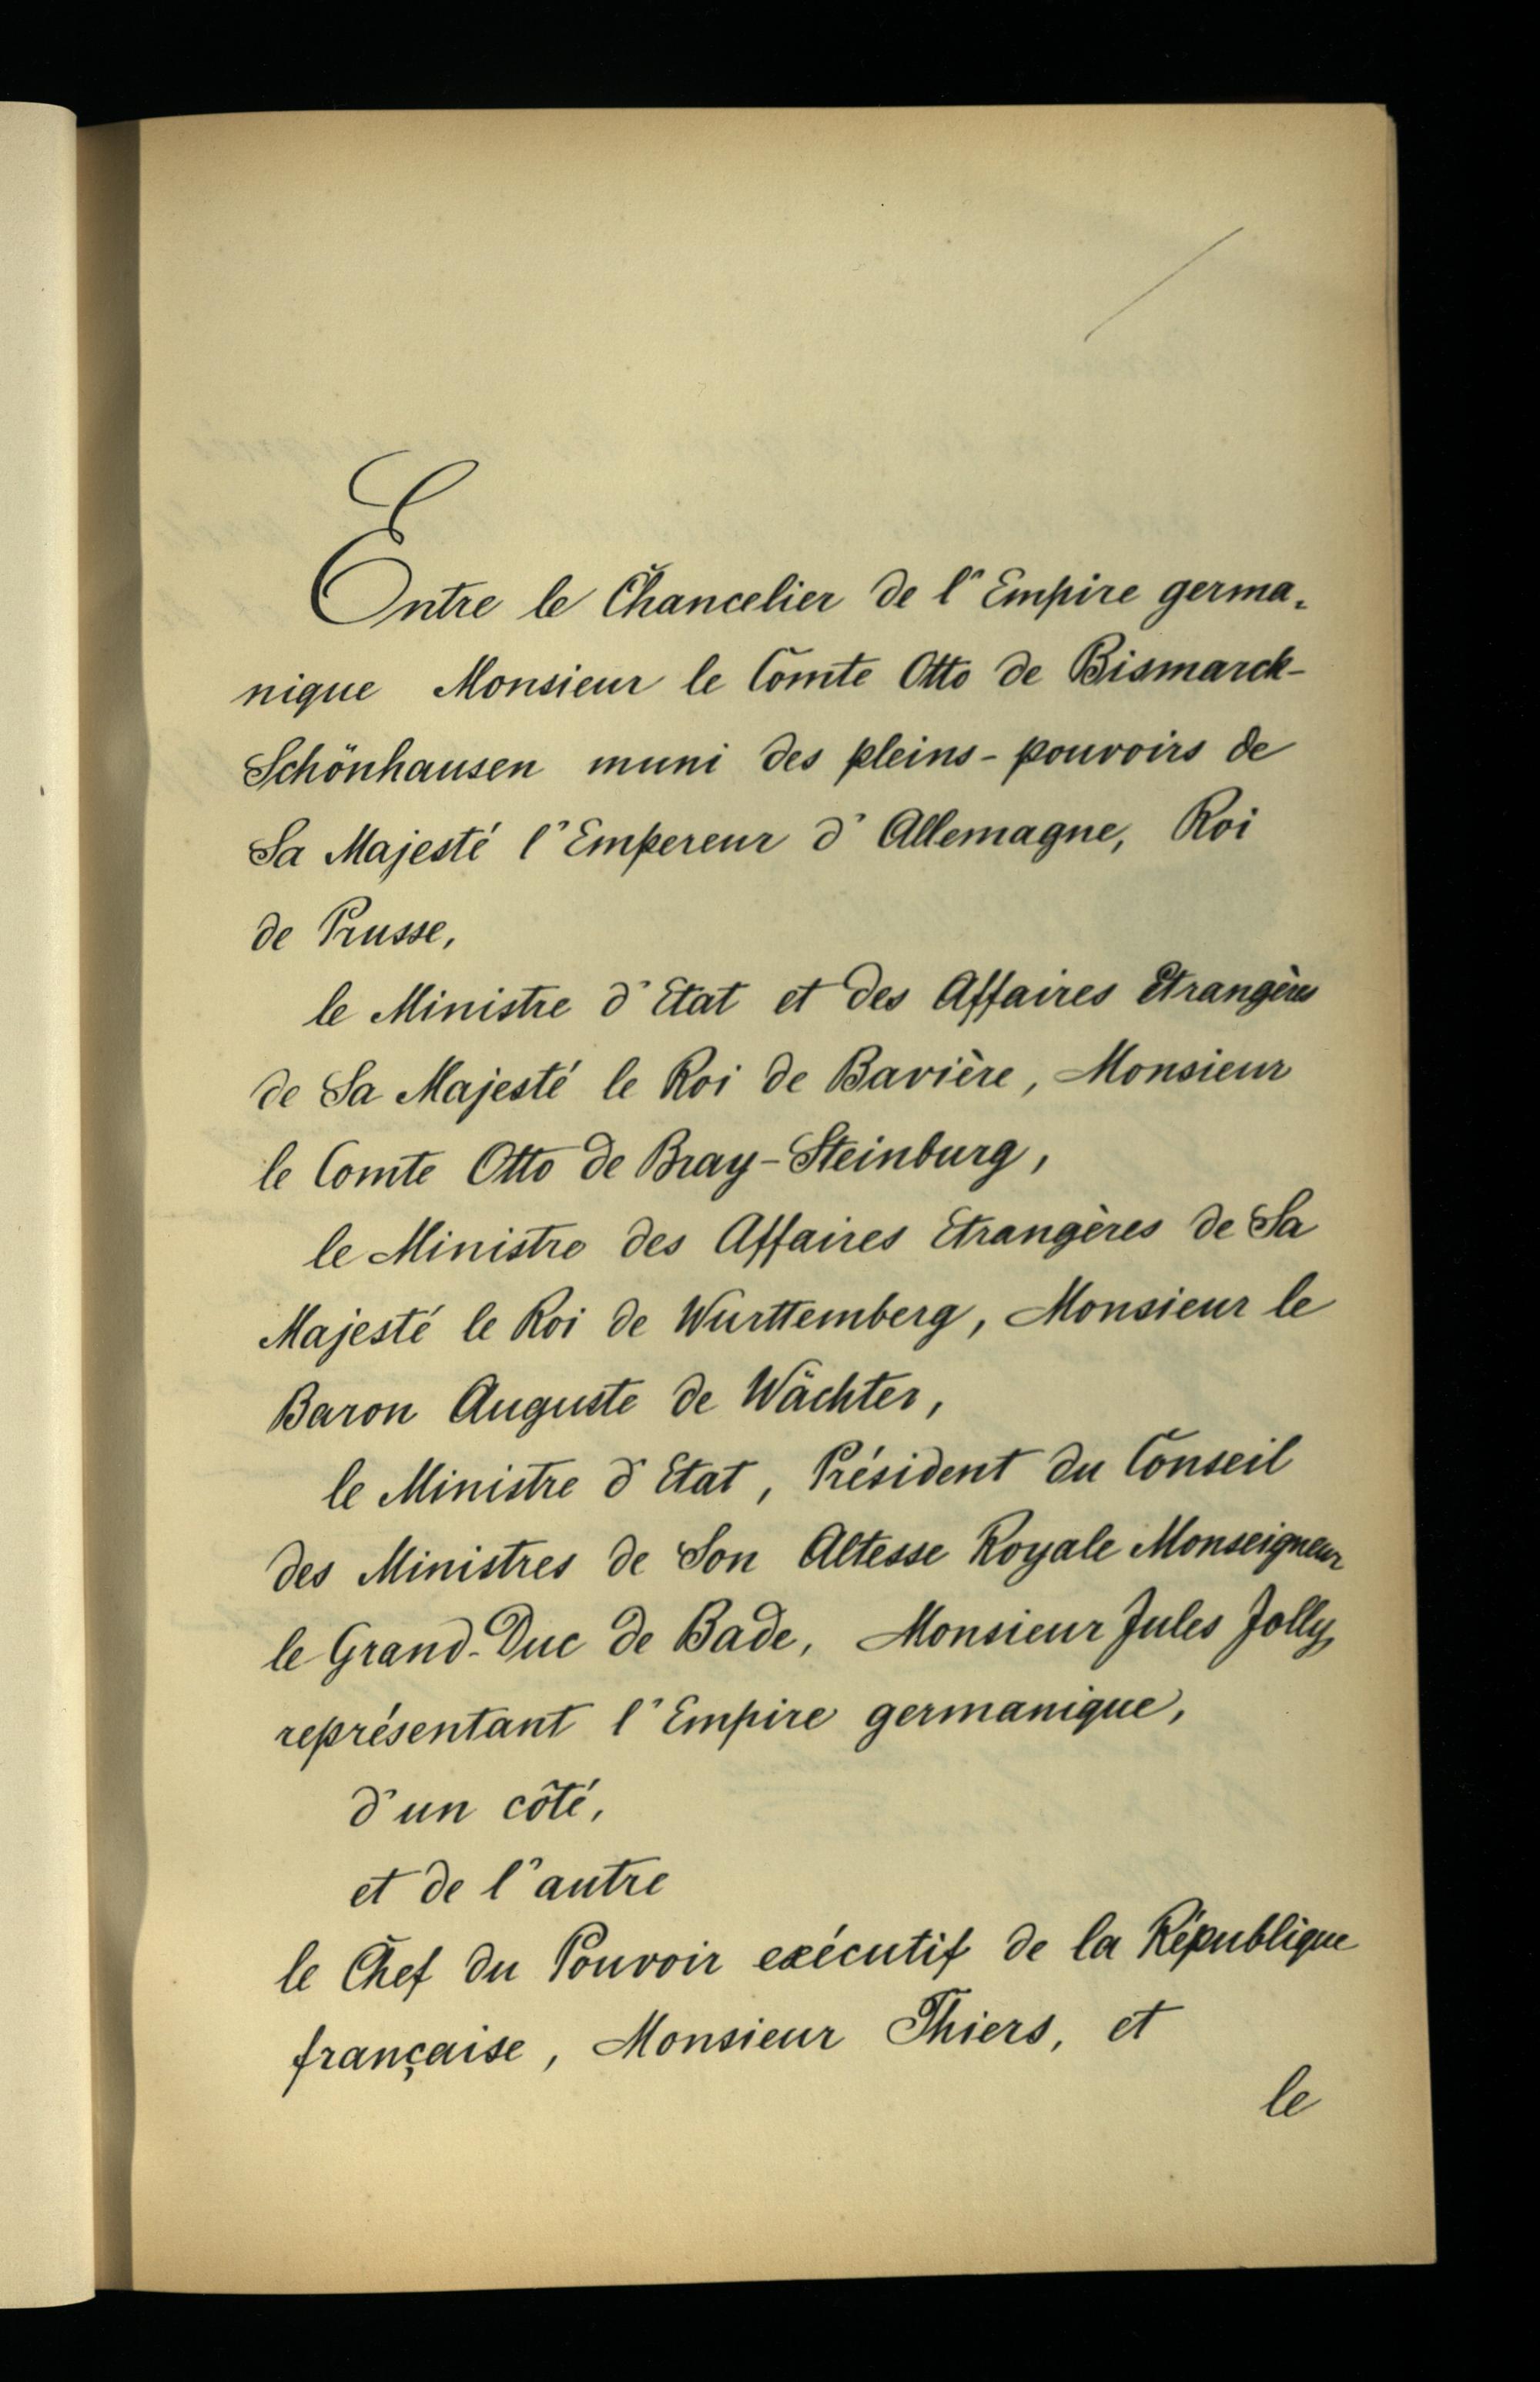 Entre le Chancelier de l'Empire germa-
nique Monsieur le Comte Otto de Bismarck-
Schönhausen muni des pleins-pouvoirs de
Sa Majesté l'Empereur d'Allemagne, Roi
de Prusse,
le Ministre d'Etat et des Affaires Etrangères
de Sa Majesté le Roi de Bavière, Monsieur
le Comte Otto de Bray-Steinburg,
le Ministre des Affaires Etrangères de Sa
Majesté le Roi de Wurttemberg, Monsieur le
Baron Auguste de Wächter,
le Ministre d'Etat, Président du Conseil
des Ministres de Son Altesse Royale Monseigneur
le Grand-Duc de Bade, Monsieur Jules Jolly,
représentant l'Empire germanique,
d'un côté,
et de l'autre
le Chef du Pouvoir exécutif de la République
française, Monsieur Thiers, et
le